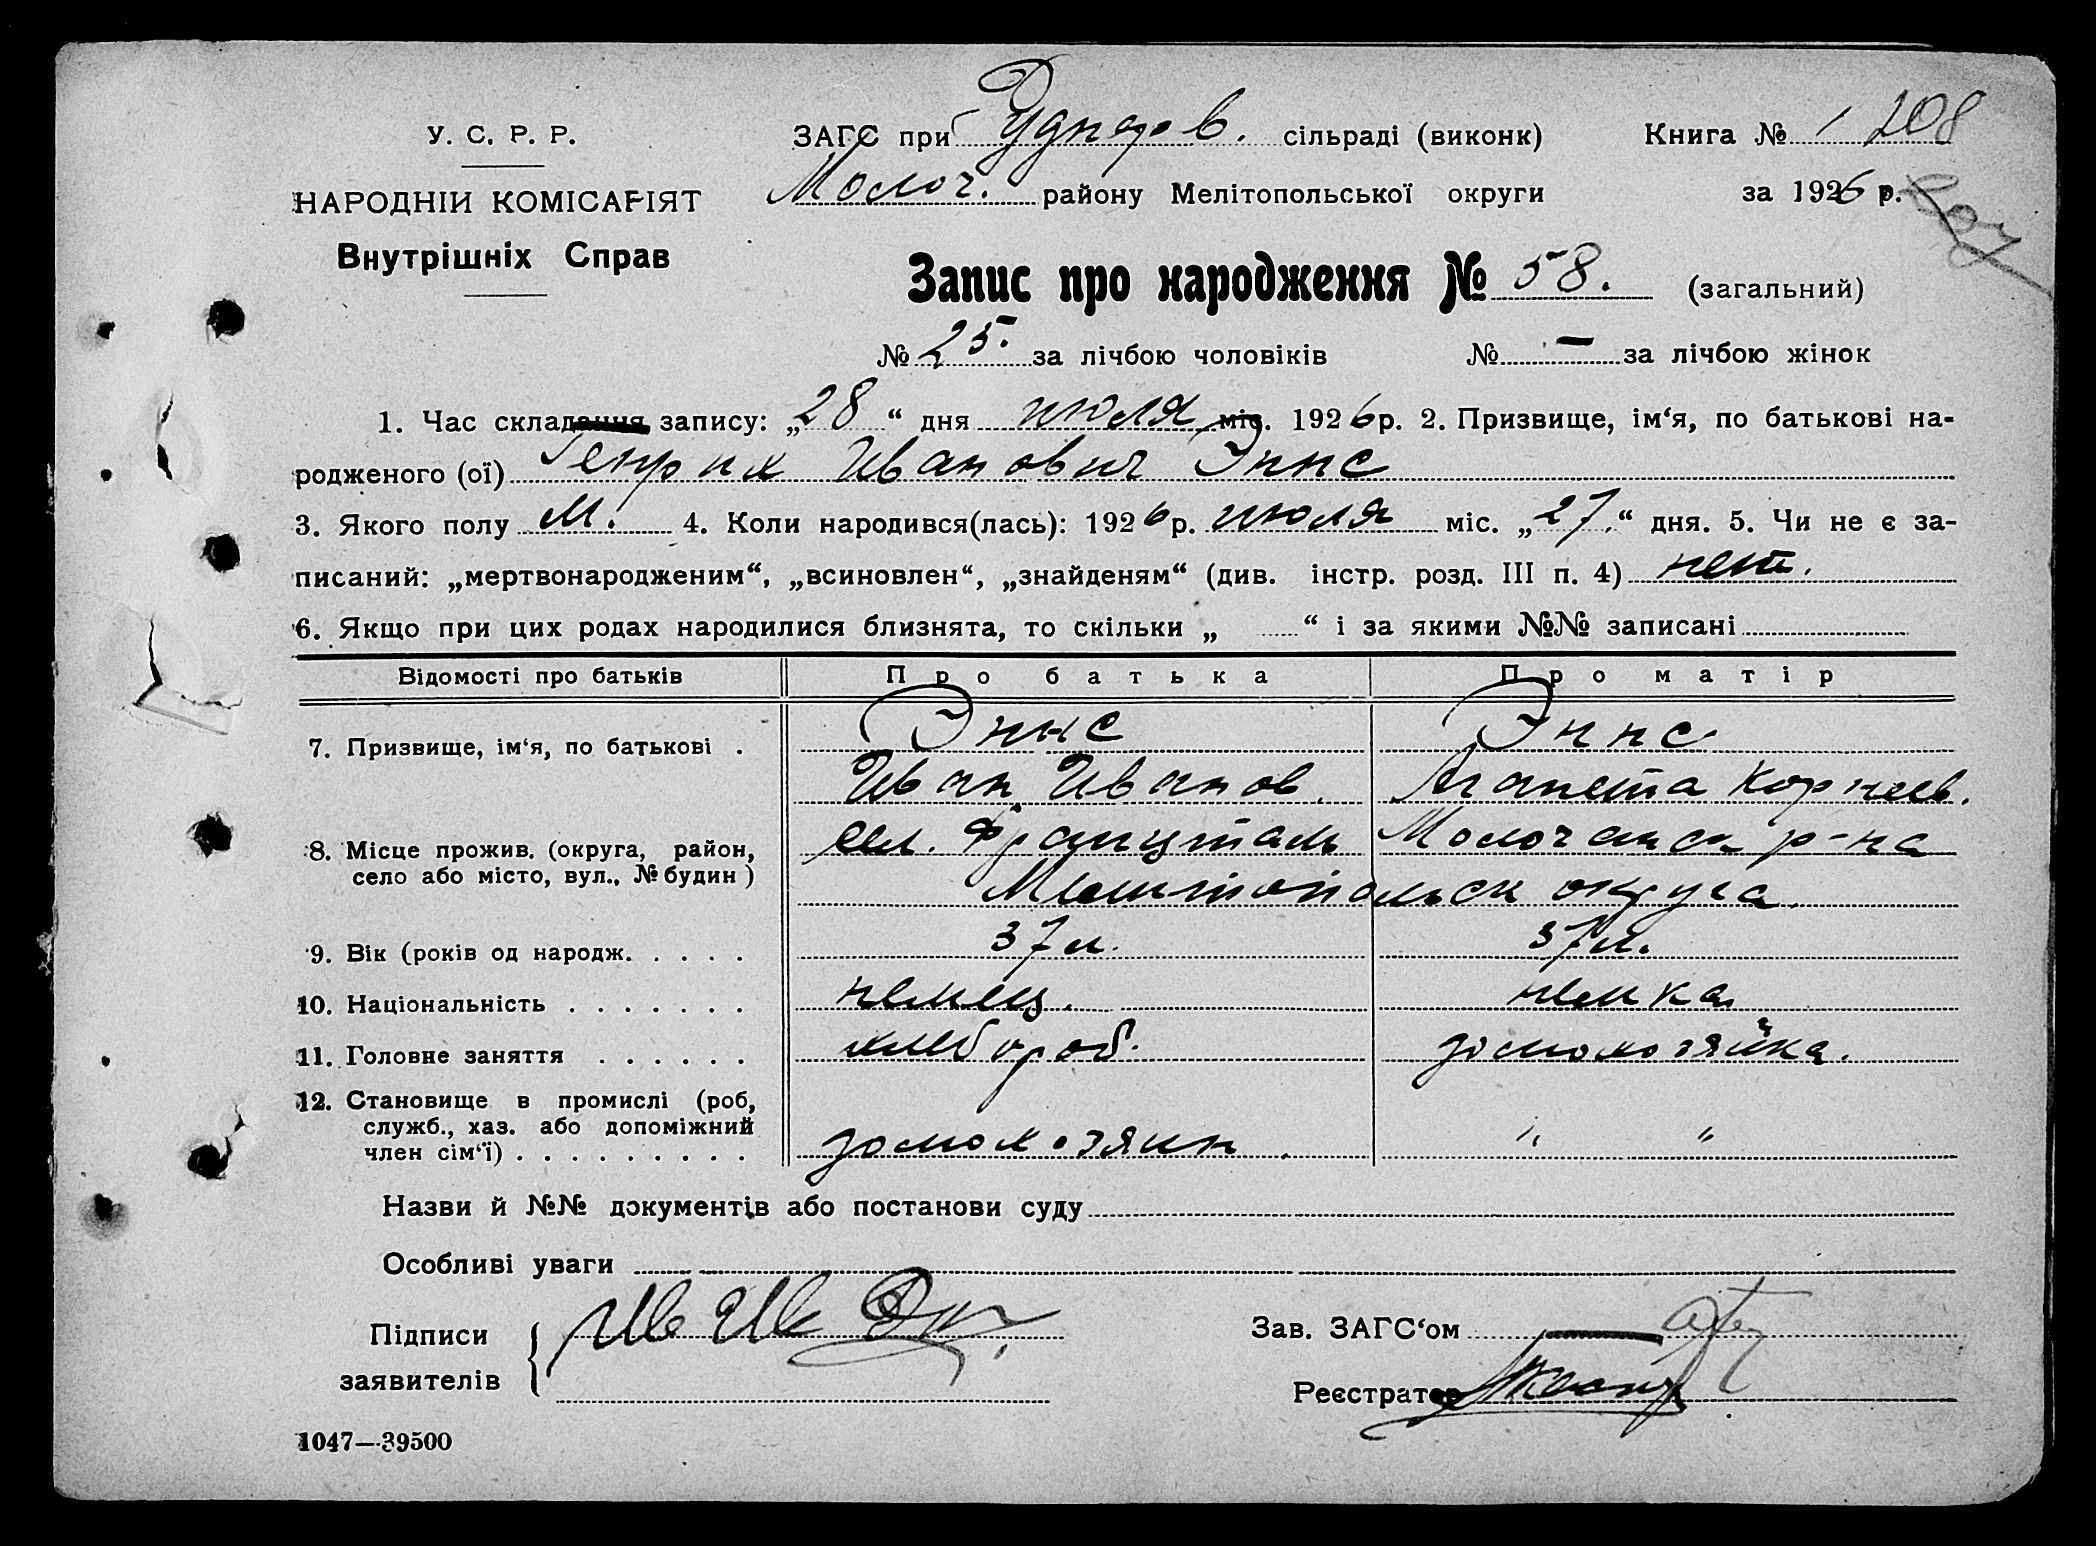 У. С. Р. Р.
НАРОДНІЙ КОМІСАРІЯТ
Внутрішніх Справ
ЗАГС при Руднер в. сільраді (виконк) Книга № 1 208
Молоч. району Мелітопольської округи за 1926 р.
Запис про народження № 58. (загальний)
№ 25. за лічбою чоловіків № — за лічбою жінок
1. Час складання запису: „28“ дня июля міс. 1926 р. 2. Призвище, ім‘я, по батькові на-
родженого (ої) Генрих Иванович Эннс
3. Якого полу М. 4. Коли народився(лась): 1926 р. июля міс. „27.“ дня. 5. Чи не є за-
писаний: „мертвонародженим“, „всиновлен“, „знайденям“ (див. інстр. розд. III п. 4) нет.
6. Якщо при цих родах народилися близнята, то скільки „ “ і за якими №№ записані
Відомості про батьків Про батька Про матір
7. Призвище, ім‘я, по батькові . Эннс Эннс
Иван Иванов. Аганета Корнеев.
8. Місце прожив. (округа, район, село або місто, вул., № будин) сел. Францталь Молочанск р-на
Мелитопольск округа.
9. Вік (років од народж. . . . . 37 л. 37 л.
10. Національність . . . . . . . немец. немка
11. Головне заняття . . . . . . хлебороб. домохозяйка.
12. Становище в промислі (роб, служб., хаз. або допоміжний член сім‘ї) . . . . . . . . . домохозяин " "
Назви й №№ документів або постанови суду
Особливі уваги
Підписи
заявителів
Зав. ЗАГС‘ом
Реєстратор
1047—39500